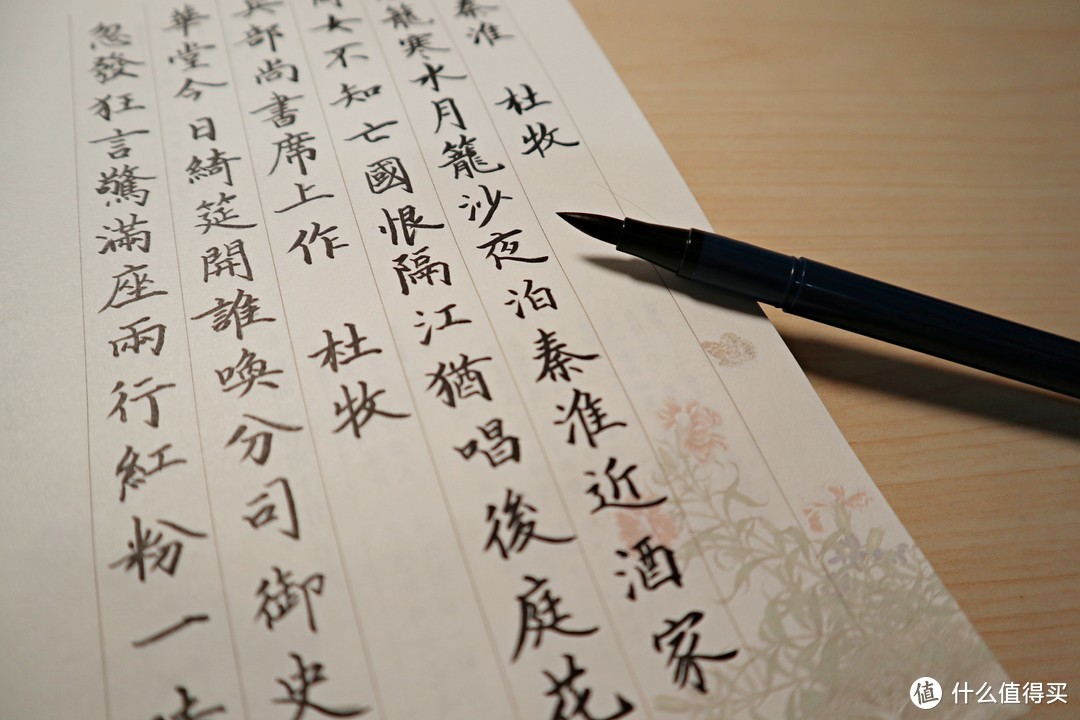 秦淮 杜牧
籠寒水月籠沙夜泊秦淮近酒家
女不知亡國恨隔江猶唱後庭花
兵部尚書席上作 杜牧
華堂今日綺筵開誰喚分司御史
忽發狂言驚滿座兩行紅粉一
值 什么值得买